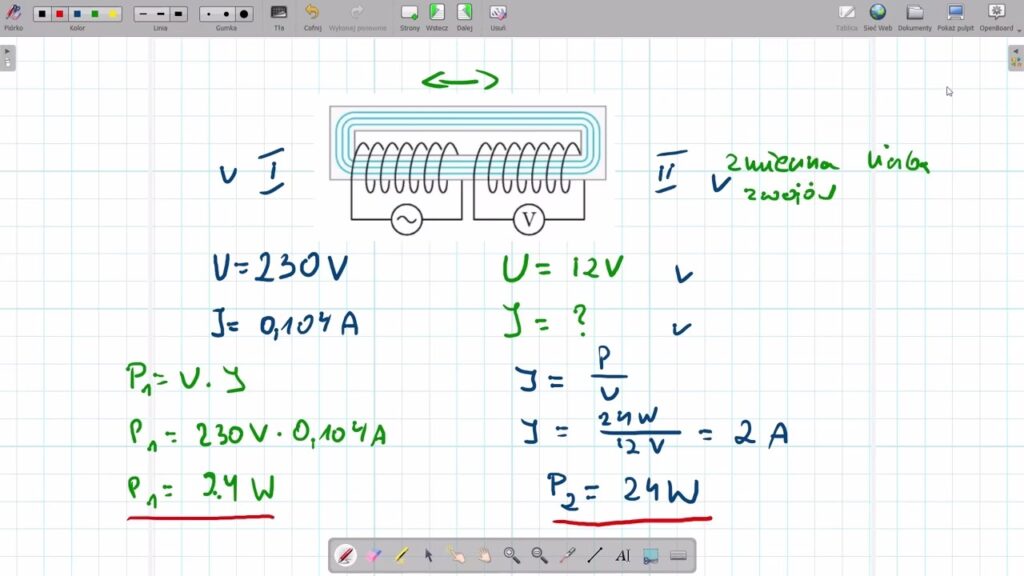 Piórko
Kolor
Linia
Gumka
Tła
Cofnij
Wykonaj ponownie
Strony
Wstecz
Dalej
Usuń
Tablica
Sieć Web
Dokumenty
Pokaż pulpit
OpenBoard
I
II
zmienna liczba
zwojów
V
U=230V
U = 12V
J= 0,104 A
J = ?
P1= U · J
J = P/U
P1 = 230V · 0,104A
J = 24W/12V = 2 A
P1= 24 W
P2= 24W
AI